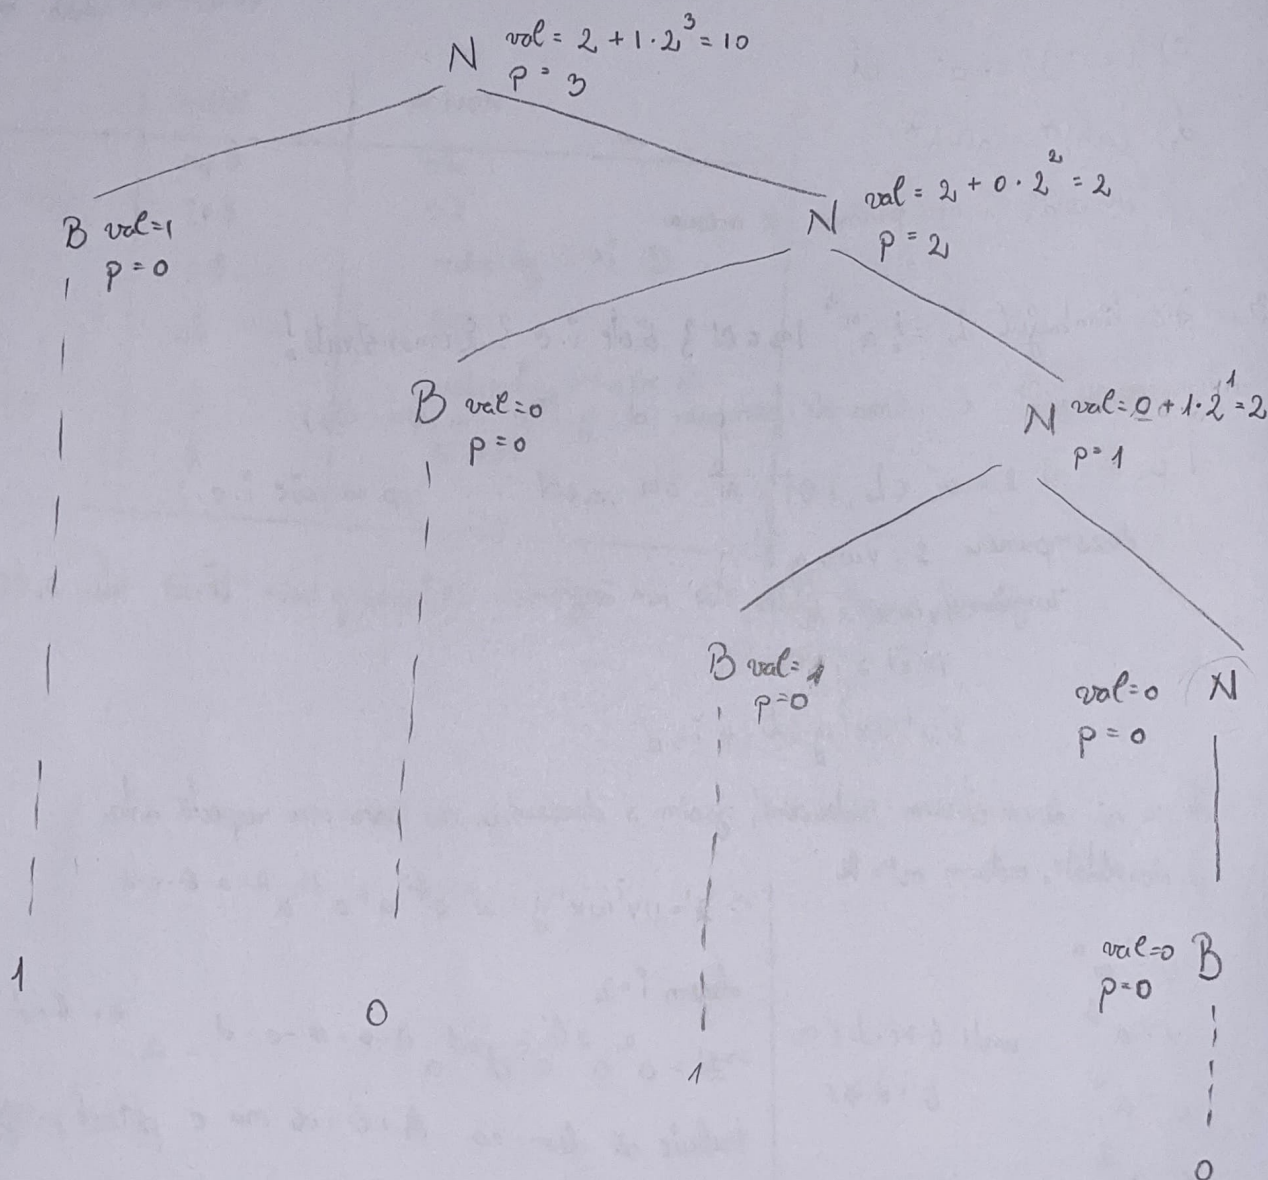 N val = 2 + 1 · 2³ = 10
p = 3
B val = 1
p = 0
N val = 2 + 0 · 2² = 2
p = 2
B val = 0
p = 0
N val = 0 + 1 · 2¹ = 2
p = 1
B val = 1
p = 0
val = 0 N
p = 0
val = 0 B
p = 0
1
0
1
0